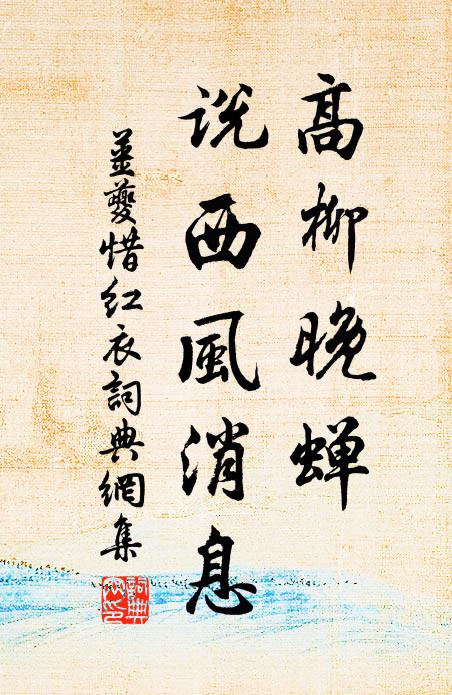 高柳晚蝉
说西風消息
姜夔惜红衣詞典網集
詞典